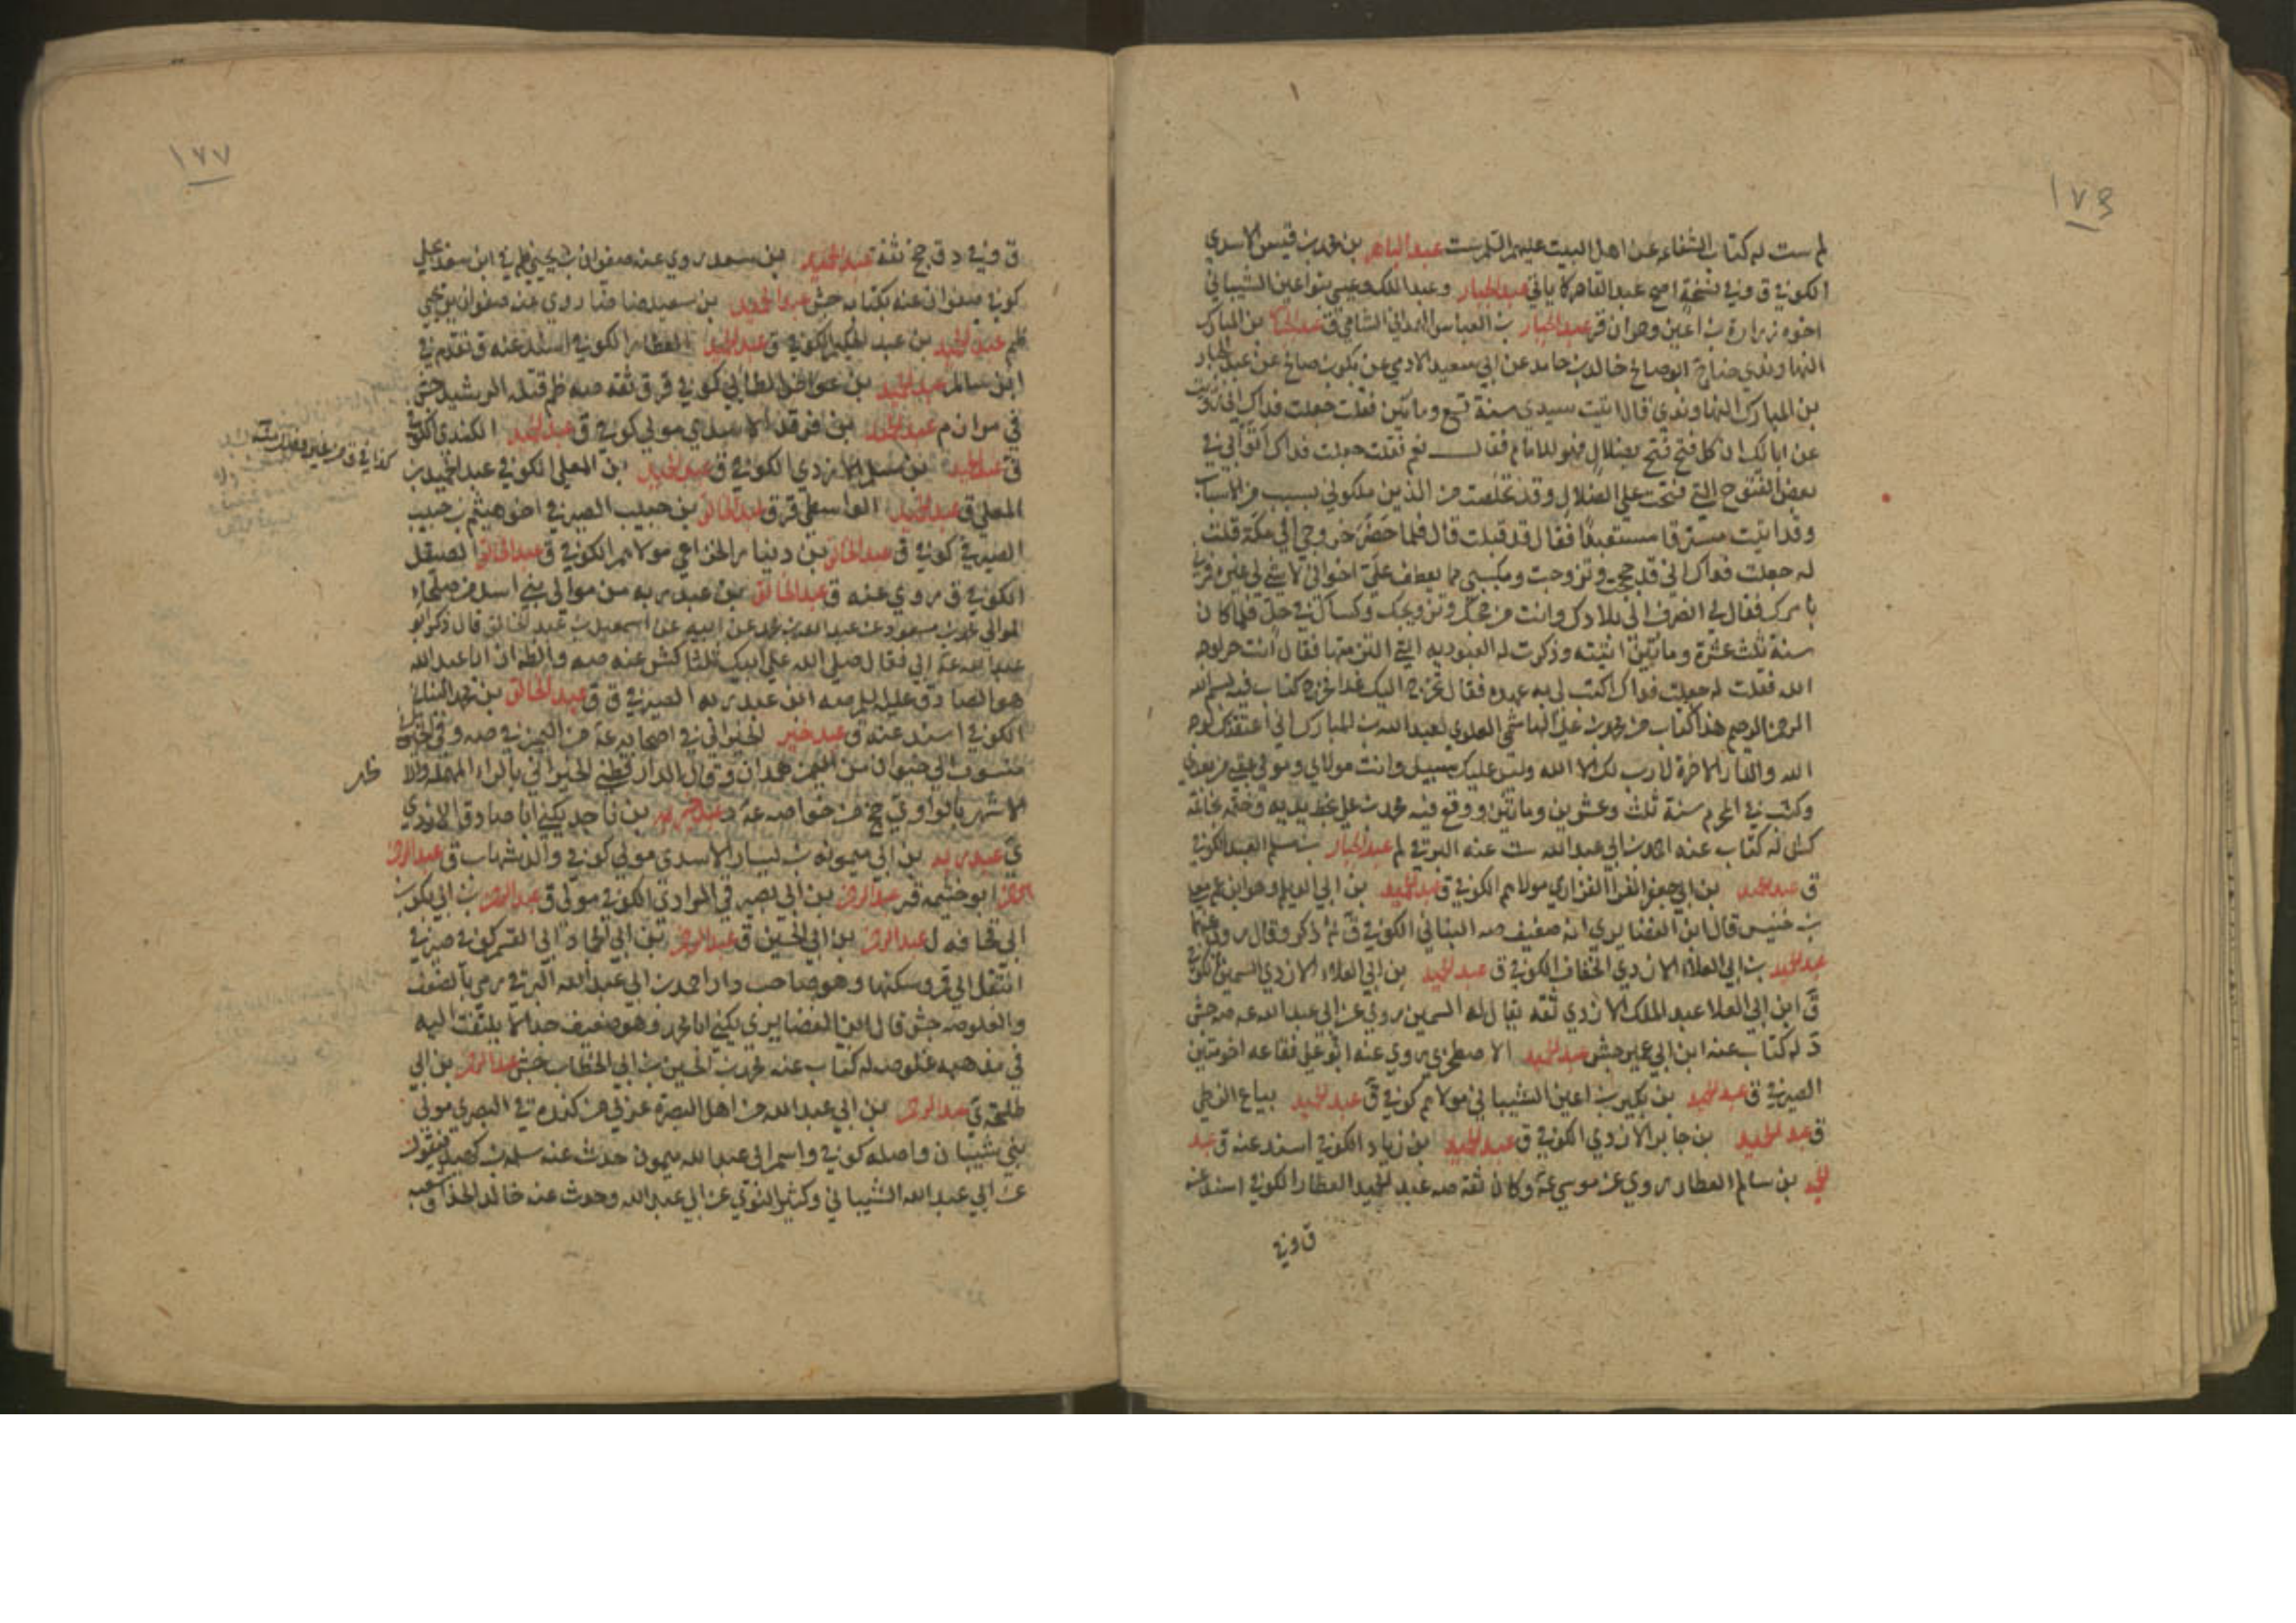 ١٧٦
لم ست له كتاب الشفاء عن اهل البيت عليهم السلم ست عبد الباهر بن محمد بن قيس الاسدي
الكوفي ق وفي نسخة اصح عبد القاهر كما ياتي عبد الجبار وعبد الملك وعيسى بنو اعين الشيباني
اخوه زرارة بن اعين وحمران قر عبد الجبار بن العباس الهمداني الشامي ق عبد الجبار بن المبارك
النهاوندي ضا ج ابو صالح خالد بن حامد عن ابي سعيد الادمي عن بكر بن صالح عن عبد الجبار
بن المبارك النهاوندي قال اتيت سيدي سنة تسع ومايتين فقلت جعلت فداك اني رويت
عن ابائك ان كل فتح فتح بضلال فهو للامام فقال نعم فقلت جعلت فداك انه اتوا بي في
بعض الفتوح التي فتحت علي الضلال وقد تخلصت من الذين ملكوني بسبب من الاسباب
وقد اتيت مسترقا مستعبدا فقال قد قبلت قال فلما حضر خروجي الى مكة قلت
له جعلت فداك اني قد حججت وتزوجت ومكسبي مما يعطف علي اخواني لا شي لي غيره فمرني
بامرك فقال لي انصرف الى بلادك وانت من حجك وتزويجك وكسبك في حل فلما كان
سنة ثلث عشرة ومائتين اتيته وذكرت له العبودية التي التزمتها فقال انت حر لوجه
الله فقلت له جعلت فداك اكتب لي به عهده فقال تخرج اليك غدا فخرج كتاب فيه بسم الله
الرحمن الرحيم هذا كتاب من محمد بن علي الهاشمي العلوي لعبد الله بن المبارك اني اعتقتك لوجه
الله والدار الاخرة لا رب لك الا الله وليس عليك سبيل وانت مولاي ومولى عقبي من بعدي
وكتب في المحرم سنة ثلث وعشرين ومائتين ووقع فيه محمد بن علي بخط يده وختمه بخاتمه
كش له كتاب عنه احمد بن ابي عبد الله ست عنه البرقي لم عبد الجبار بن مسلم العبد الكوفي
ق عبد الحميد بن ابي جعفر الفرا الفزاري مولاهم الكوفي ق عبد الحميد بن ابي الديلم وهو ابن عم معلى
بن خنيس قال ابن الغضايري انه ضعيف صه النباني الكوفي ق ثم ذكر وقال روى عنهما
عبد الحميد بن ابي العلاء الازدي الخفاف الكوفي ق عبد الحميد بن ابي العلاء الازدي السمين الكوفي
ق ابن ابي العلا عبد الملك الازدي ثقه يقال له السمين روي عن ابي عبد الله عه صه جش
د له كتاب عنه ابن ابي عمير جش عبد الحميد الاصطخري روي عنه ابو علي فقاعه اخو متين
الصيرفي ق عبد الحميد بن بكير بن اعين الشيباني مولاهم كوفي ق عبد الحميد بياع الزطي
ق عبد الحميد بن جابر الازدي الكوفي ق عبد الحميد بن زياد الكوفي اسند عنه ق عبد
الحميد بن سالم العطار روي عن موسى عه وكان ثقة صه عبد الحميد العطار الكوفي اسند عنه
ق وفي
١٧٧
ق وفي د ق جخ ثقة عبد الحميد بن سعد روي عنه صفوان بن يحيى ظم في ابن سعد بجلي
كوفي صفوان عنه بكتابه جش عبد الحميد بن سعيد ضا ضا روي عنه صفوان بن يحيى
ظم عبد الحميد بن عبد الحكيم الكوفي ق عبد الحميد العطار الكوفي اسند عنه ق تقدم في
ابن سالم عبد الحميد بن عواض الطائي كوفي قر ق ثقه صه ظم قتله الرشيد جش
في مرازم عبد الحميد بن فرقد الاسدي مولى كوفي ق عبد الحميد الكندي الكوفي
كذا في ق
ق عبد الحميد بن مسلم الازدي الكوفي ق عبد الحميد بن المعلي الكوفي عبد الحميد بن
المعلي ق عبد الحميد الواسطي قر ق عبد الخالق بن حبيب الصيرفي اخو هيثم بن حبيب
الصيرفي كوفي ق عبد الخالق بن دينار الخزاعي مولاهم الكوفي ق عبد الخالق الصيقل
الكوفي ق روي عنه ق عبد الخالق بن عبد ربه من موالي بني اسد من صلحاء
الموالي محمد بن مسعود عن عبد الله بن محمد عن ابيه عن اسمعيل بن عبد الخالق قال ذكر ابو
عبد الله عه ابي فقال صلى الله على ابيك ثلثا كش عنه صه والظ ان ابا عبد الله
هو الصادق عليه السلم صه ابن عبد ربه الصيرفي ق ق عبد الخالق بن محمد البناني
الكوفي اسند عنه ق عبد خير الخيراني في اصحابه عه من اليمن في صه وفي
منسوب الى خيوان من اليمن همدان وقال الدارقطني الخيراني بالراء المهملة والا
ظهر
لاشهر بالواو ي جخ من خواصه عه د عبد خير بن ناجد يكنى ابا صادق الازدي
ي عبد ربه بن ابي ميمونه بن يسار الاسدي مولى كوفي والد شهاب ق عبد الرحمن
ابو خيثمه قر عبد الرحمن بن ابي بصير في المرادي الكوفي مولى ق عبد الرحمن بن ابي بكر بن
ابي قحافه ل عبد الرحمن بن ابي الحسين ق عبد الرحمن بن ابي حماد ابي القسم كوفي صيرفي
انتقل الى قم وسكنها وهو صاحب دار احمد بن ابي عبد الله البرقي رمي بالضعف
والغلو صه جش قال ابن الغضايري يكنى ابا محمد وهو ضعيف جدا لا يلتفت اليه
في مذهبه غلو صه له كتاب عنه محمد بن الحسين بن ابي الخطاب جش عبد الرحمن بن ابي
طلحة ي عبد الرحمن بن ابي عبد الله من اهل البصرة عربي من كندة في البصري مولى
بني شيبان واصله كوفي واسم ابي عبد الله ميمون حدث عنه سلمة بن كهيل فيقول
عن ابي عبد الله الشيباني وكثير النوي عن ابي عبد الله وحدث عنه خالد الحذا وشعبه